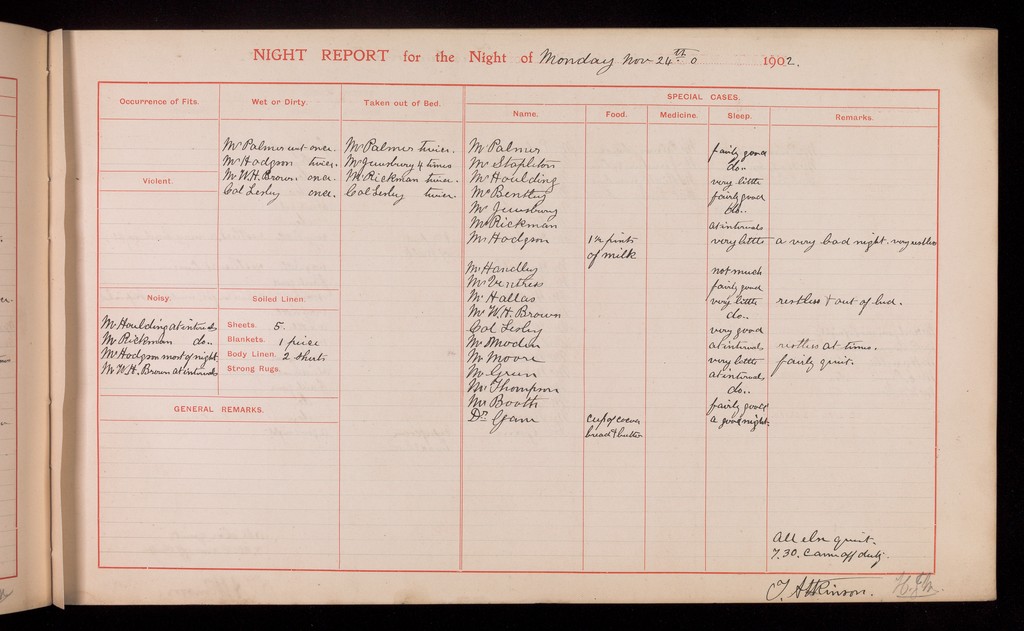 NIGHT REPORT for the Night of Monday Nov 24th 1902.
Occurrence of Fits.
Wet or Dirty.
Taken out of Bed.
SPECIAL CASES.
Name.
Food.
Medicine.
Sleep.
Remarks.
Mr Palmer wet once.
Mr Hodgson twice.
Mr W.H. Brown once.
Col Lesley once.
Mr Palmer twice.
Mr Jewsbury 4 times
Mr Rickman twice.
Col Lesley twice.
Violent.
Noisy.
Mr Houlding at intervals
Mr Rickman do..
Mr Hodgson most of night
Mr W.H. Brown at intervals
Soiled Linen.
Sheets 5.
Blankets. 1 piece
Body Linen. 2 shirts
Strong Rugs.
GENERAL REMARKS.
Mr Palmer fairly good
Mr Stapleton do..
Mr Houlding very little
Mr Bentley fairly good
Mr Jewsbury do..
Mr Rickman at intervals
Mr Hodgson 1½ pints very little a very bad night. very restless
of milk
Mr Handley not much
Mr Ventress fairly good
Mr Hallas very little restless & out of bed.
Mr W.H. Brown do..
Col Lesley very good
Mr at intervals restless at times.
Mr Moore very little fairly quiet.
Mr Green at intervals
Mr Thompson do..
Mr Booth fairly good
Dr cup of cocoa a good night.
bread & butter
All else quiet.
7.30. Came off duty.
T. Atkinson.